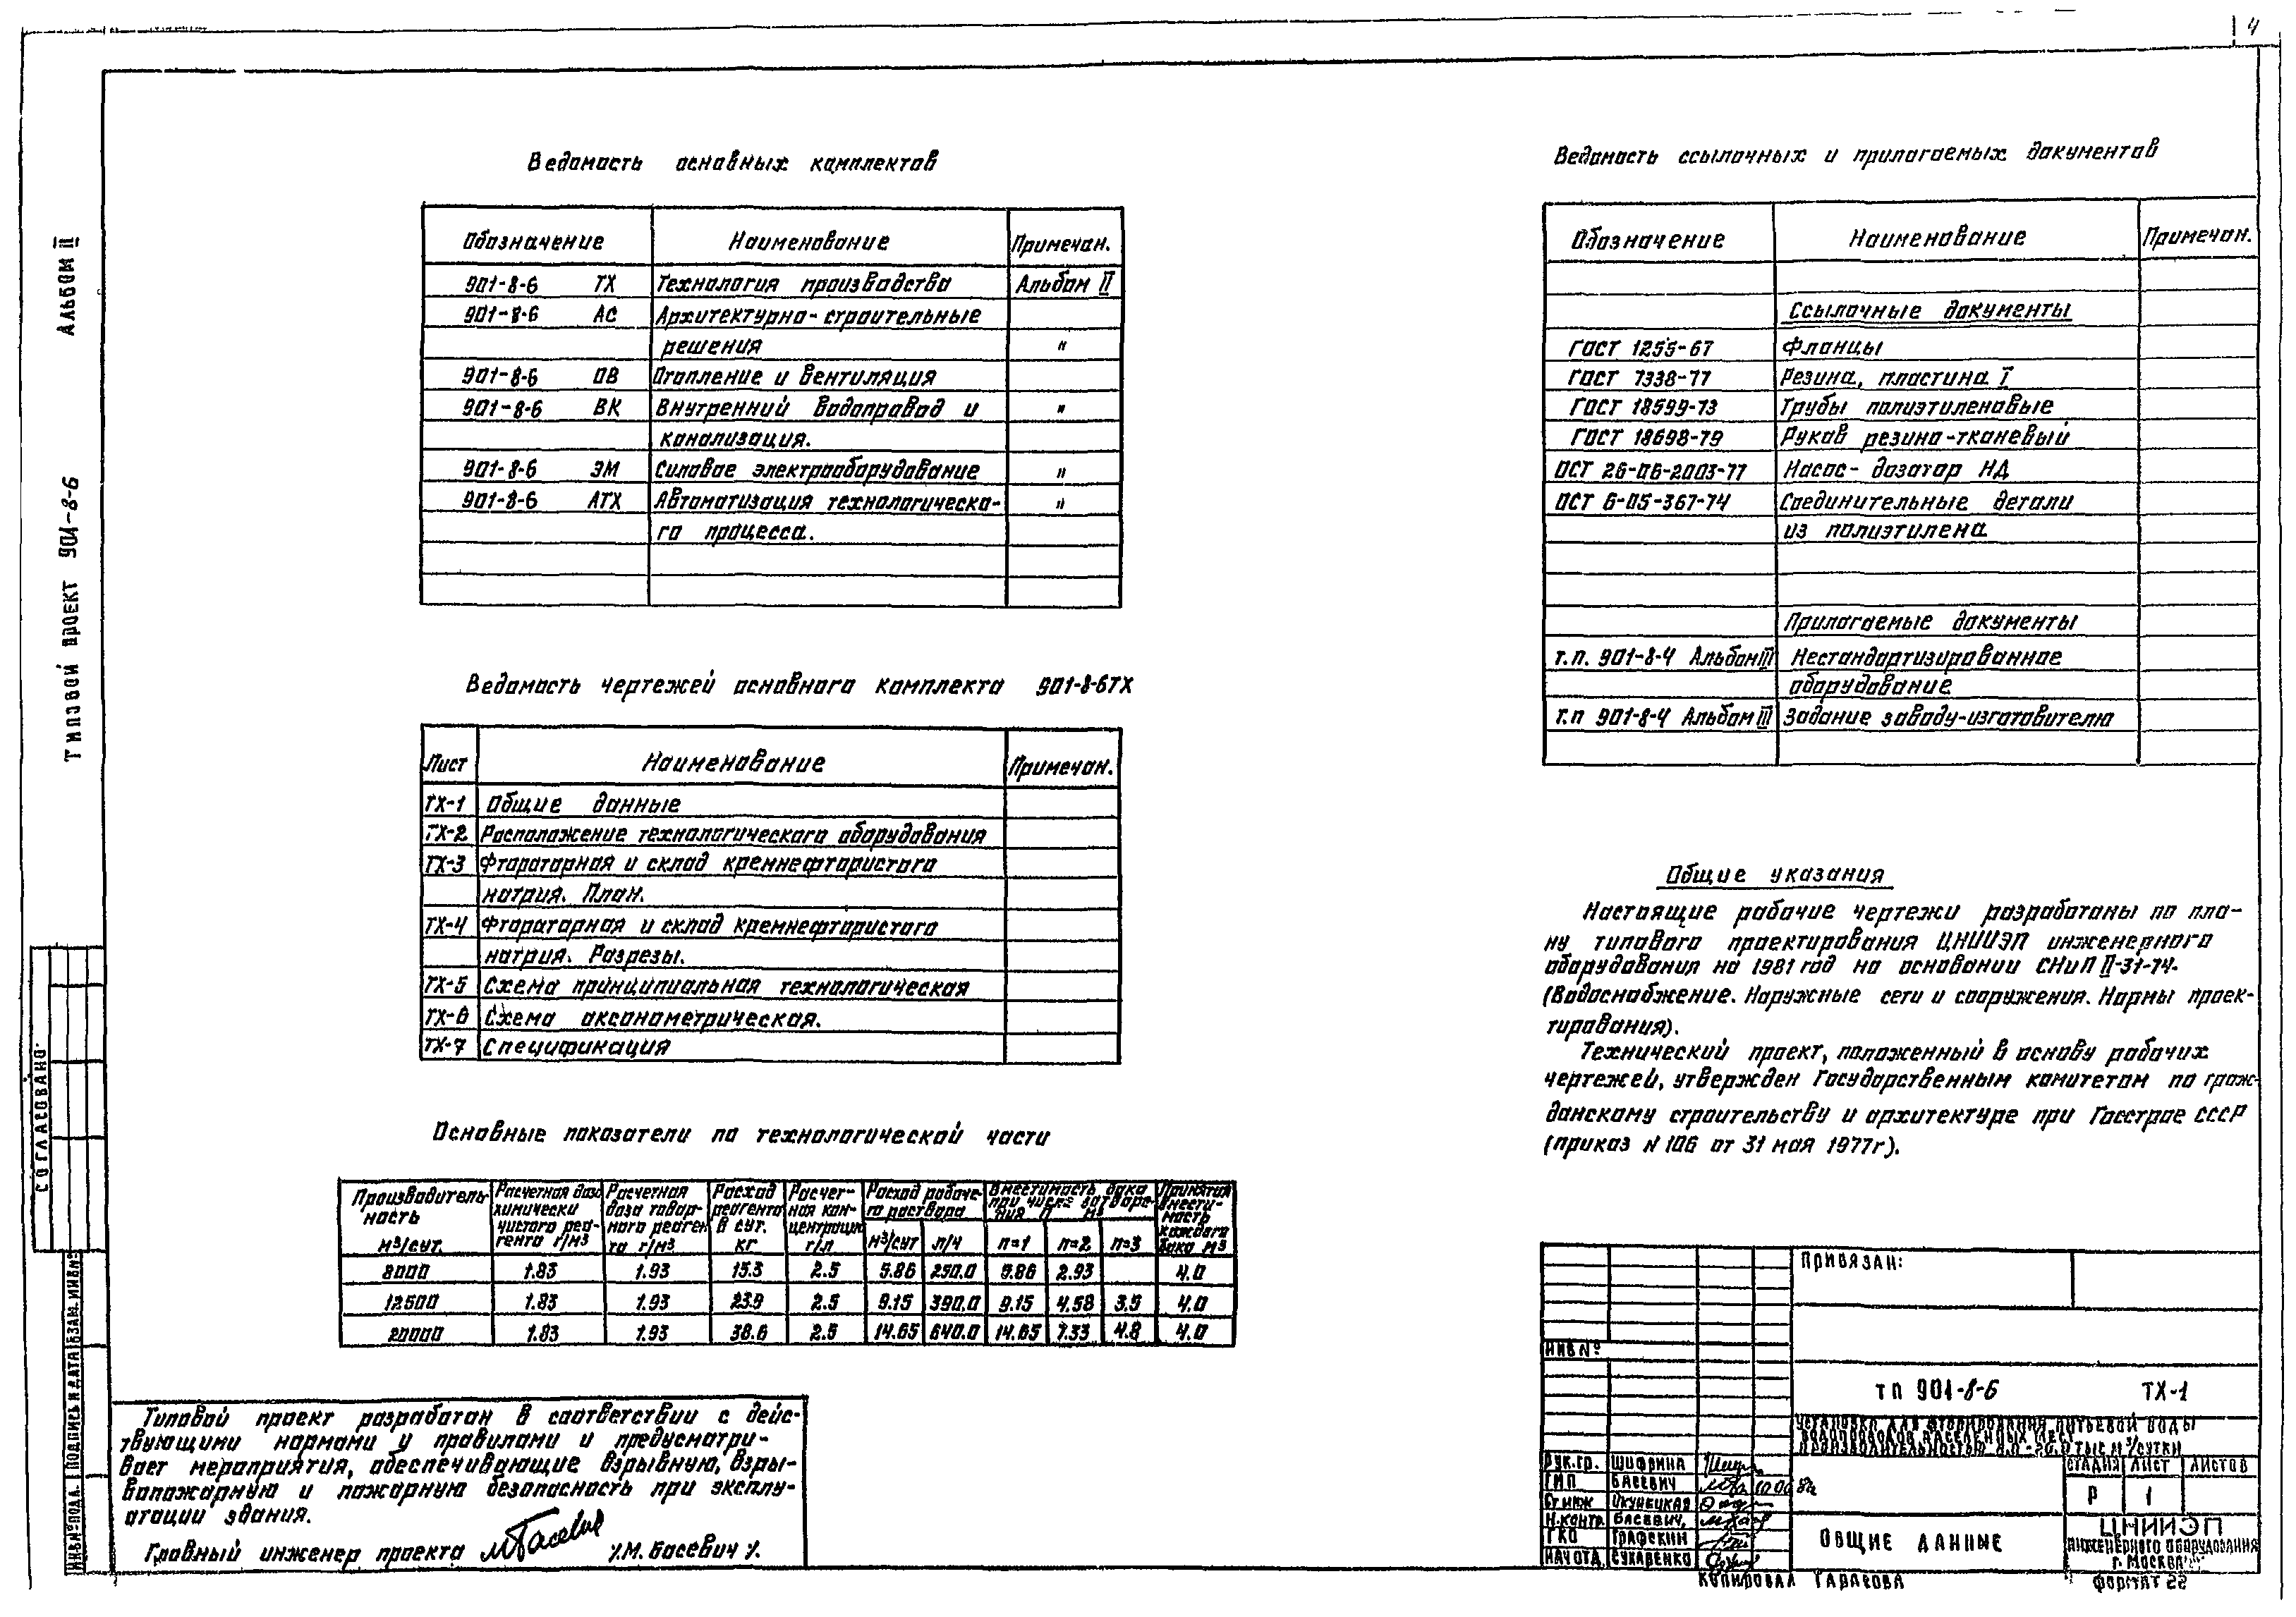 4
Альбом II
Типовой проект 901-8-6
Согласовано:
Взам. инв.№
Подпись и дата
Инв.№ подл.
Ведомость основных комплектов
Обозначение Наименование Примечан.
901-8-6 ТХ Технология производства Альбом II
901-8-6 АС Архитектурно-строительные
решения "
901-8-6 ОВ Отопление и вентиляция
901-8-6 ВК Внутренний водопровод и "
канализация.
901-8-6 ЭМ Силовое электрооборудование "
901-8-6 АТХ Автоматизация технологическо- "
го процесса.
Ведомость чертежей основного комплекта 901-8-6ТХ
Лист Наименование Примечан.
ТХ-1 Общие данные
ТХ-2 Расположение технологического оборудования
ТХ-3 Фтораторная и склад кремнефтористого
натрия. План.
ТХ-4 Фтораторная и склад кремнефтористого
натрия. Разрезы.
ТХ-5 Схема принципиальная технологическая
ТХ-6 Схема аксонометрическая.
ТХ-7 Спецификация
Основные показатели по технологической части
Производительность м³/сут. Расчетная доза химически чистого реагента г/м³ Расчетная доза товарного реагента г/м³ Расход реагента в сут. кг Расчетная концентрация г/л Расход рабочего раствора м³/сут л/ч Вместимость бака при числе затворения п м³ п=1 п=2 п=3 Принятая вместимость каждого бака м³
8000 1.83 1.93 15.3 2.5 5.86 250.0 5.86 2.93 4.0
12500 1.83 1.93 23.9 2.5 9.15 390.0 9.15 4.58 3.5 4.0
20000 1.83 1.93 38.6 2.5 14.65 640.0 14.65 7.33 4.8 4.0
Типовой проект разработан в соответствии с дейс-
твующими нормами и правилами и предусматри-
вает мероприятия, обеспечивающие взрывную, взры-
вопожарную и пожарную безопасность при эксплу-
атации здания.
Главный инженер проекта /М. Басевич/.
Ведомость ссылочных и прилагаемых документов
Обозначение Наименование Примечан.
Ссылочные документы
ГОСТ 1255-67 Фланцы
ГОСТ 7338-77 Резина, пластина I
ГОСТ 18599-73 Трубы полиэтиленовые
ГОСТ 18698-79 Рукав резино-тканевый
ОСТ 26-06-2003-77 Насос-дозатор НД
ОСТ 6-05-367-74 Соединительные детали
из полиэтилена
Прилагаемые документы
т.п. 901-8-4 Альбом III Нестандартизированное
оборудование
т.п 901-8-4 Альбом III Задание заводу-изготовителю
Общие указания
Настоящие рабочие чертежи разработаны по пла-
ну типового проектирования ЦНИИЭП инженерного
оборудования на 1981 год на основании СНиП II-31-74.
(Водоснабжение. Наружные сети и сооружения. Нормы проек-
тирования).
Технический проект, положенный в основу рабочих
чертежей, утвержден Государственным комитетом по граж-
данскому строительству и архитектуре при Госстрое СССР
(приказ N 106 от 31 мая 1977г).
Привязан:
Инв №
ТП 901-8-6 ТХ-1
Установка для фторирования питьевой воды
водопроводов населенных мест
производительностью 8.0-20.0 тыс м³/сутки
Рук.гр. Шифрина
ГИП Басевич
Ст.инж Окунецкая
Н.контр. Басевич
ГКО Графский
Нач отд. Сухаренко
Стадия Лист Листов
Р 1
Общие данные
ЦНИИЭП
инженерного оборудования
г. Москва
Копировал Тарасова
Формат 22